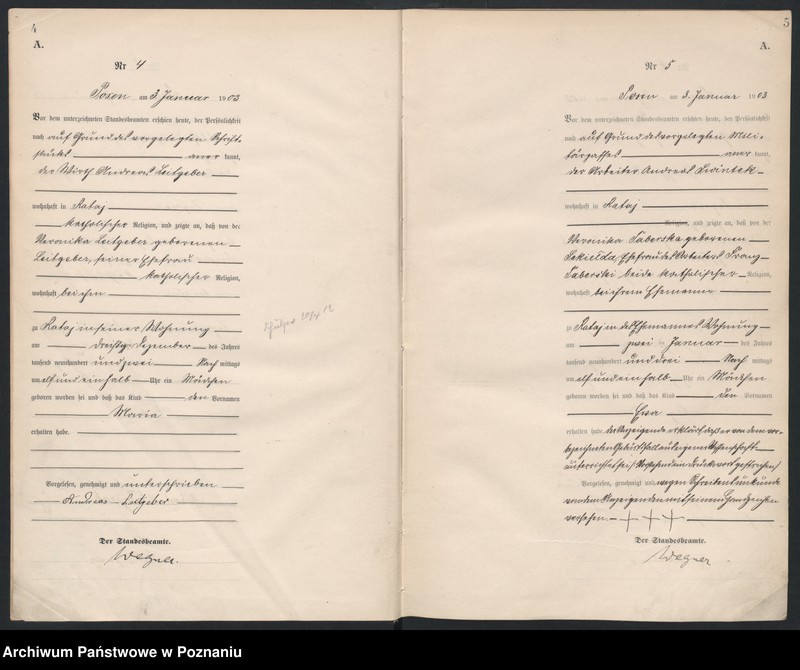 4
A.
Nr 4
Posen am 3. Januar 1903
Vor dem unterzeichneten Standesbeamten erschien heute, der Persönlichkeit
nach auf Grund des vorgelegten Schrift-
stückes aner kannt,
der Wirth Andreas Leitgeber
wohnhaft in Rataj
katholischer Religion, und zeigte an, daß von der
Veronika Leitgeber geborenen
Leitgeber, seiner Ehefrau
katholischer Religion,
wohnhaft bei ihm
zu Rataj in seiner Wohnung
am dreißig Dezember des Jahres
tausend neunhundert und zwei Nach mittags
um elf und ein halb Uhr ein Mädchen
geboren worden sei und daß das Kind den Vornamen
Maria
erhalten habe.
Vorgelesen, genehmigt und unterschrieben
Andreas Leitgeber
Der Standesbeamte.
Wegner.
5
A.
Nr 5
Posen am 3. Januar 1903
Vor dem unterzeichneten Standesbeamten erschien heute, der Persönlichkeit
nach auf Grund des vorgelegten Mili-
tärpasses aner kannt,
der Arbeiter Andreas
wohnhaft in Rataj
Religion, und zeigte an, daß von der
Veronika Taberska geborenen
Ehefrau des Arbeiters Franz
Taberski beide katholischer Religion,
wohnhaft bei ihrem Ehemanne
zu Rataj in des Ehemannes Wohnung
am zwei Januar des Jahres
tausend neunhundert und drei Nach mittags
um elf und ein halb Uhr ein Mädchen
geboren worden sei und daß das Kind den Vornamen
Ewa
erhalten habe. der Anzeigende erklärt, daß er von dem vor-
bezeichneten Geburtsfall aus eigener Wissenschaft
unterrichtet sei. Vorstehend ein Druckwort gestrichen
Vorgelesen, genehmigt und wegen Schreibensunkunde
von dem Anzeigenden mit seinem Handzeichen
versehen. + + +
Der Standesbeamte.
Wegner.
Archiwum Państwowe w Poznaniu